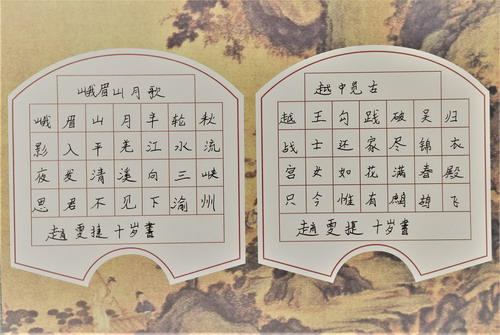 峨眉山月歌
峨眉山月半轮秋
影入平羌江水流
夜发清溪向三峡
思君不见下渝州
趙雯捷十岁書
越中览古
越王勾践破吴归
战士还家尽锦衣
宫女如花满春殿
只今惟有鹧鸪飞
趙雯捷十岁書